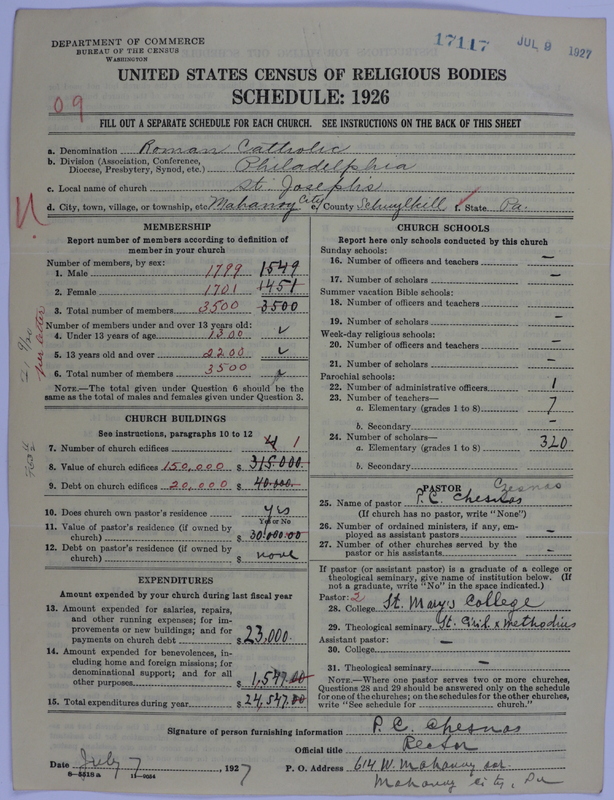 17117 JUL 9 1927
DEPARTMENT OF COMMERCE
BUREAU OF THE CENSUS
WASHINGTON
UNITED STATES CENSUS OF RELIGIOUS BODIES
SCHEDULE: 1926
09
FILL OUT A SEPARATE SCHEDULE FOR EACH CHURCH. SEE INSTRUCTIONS ON THE BACK OF THIS SHEET
a. Denomination Roman Catholic
b. Division (Association, Conference, Diocese, Presbytery, Synod, etc.) Philadelphia
c. Local name of church St. Joseph's
d. City, town, village, or township, etc. Mahanoy City e. County Schuylkill f. State Pa.
MEMBERSHIP
Report number of members according to definition of
member in your church
Number of members, by sex:
1. Male 1799 1549
2. Female 1701 1451
3. Total number of members 3500 3500
Number of members under and over 13 years old:
4. Under 13 years of age 1300 ✓
5. 13 years old and over 2200 ✓
6. Total number of members 3500
NOTE.—The total given under Question 6 should be the
same as the total of males and females given under Question 3.
per letter
CHURCH BUILDINGS
See instructions, paragraphs 10 to 12
7. Number of church edifices 4 1
8. Value of church edifices 150,000 $ 315.000.
9. Debt on church edifices 20,000 $ 40.000.
10. Does church own pastor's residence yes
Yes or No
11. Value of pastor's residence (if owned by
church) $ 30,000.00
12. Debt on pastor's residence (if owned by
church) $ none
EXPENDITURES
Amount expended by your church during last fiscal year
13. Amount expended for salaries, repairs,
and other running expenses; for im-
provements or new buildings; and for
payments on church debt $ 23,000.
14. Amount expended for benevolences, in-
cluding home and foreign missions; for
denominational support; and for all
other purposes $ 1,547.00
15. Total expenditures during year $ 24,547.00
CHURCH SCHOOLS
Report here only schools conducted by this church
Sunday schools:
16. Number of officers and teachers —
17. Number of scholars —
Summer vacation Bible schools:
18. Number of officers and teachers —
19. Number of scholars —
Week-day religious schools:
20. Number of officers and teachers —
21. Number of scholars —
Parochial schools:
22. Number of administrative officers 1
23. Number of teachers—
a. Elementary (grades 1 to 8) 7
b. Secondary —
24. Number of scholars—
a. Elementary (grades 1 to 8) 320
b. Secondary
PASTOR Czesnas
25. Name of pastor P. C. Chesnas
(If church has no pastor, write "None")
26. Number of ordained ministers, if any, em-
ployed as assistant pastors —
27. Number of other churches served by the
pastor or his assistants —
If pastor (or assistant pastor) is a graduate of a college or
theological seminary, give name of institution below. (If
not a graduate, write "No" in the space indicated.)
Pastor: 2
28. College St. Mary's College
29. Theological seminary St. Ciril & Methodius
Assistant pastor:
30. College —
31. Theological seminary —
NOTE.—Where one pastor serves two or more churches,
Questions 28 and 29 should be answered only on the schedule
for one of the churches; on the schedules for the other churches,
write "See schedule for church."
Signature of person furnishing information P. C. Chesnas
Official title Rector
Date July 7, 1927 P. O. Address 614 W. Mahanoy ave.
8—5518 a 11—9034 Mahanoy City, Pa